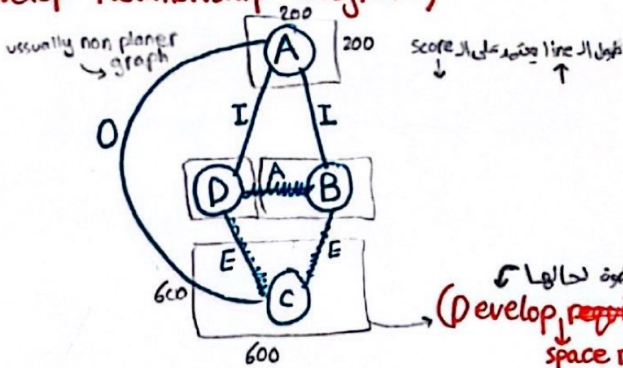 200
ussually non planer
graph
A
200
طول ال line يعتمد على ال score
O
I
I
D
A
B
E
E
C
600
لحالها
(Develop
space
600